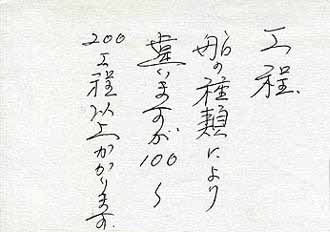 工程
船の種類により
違いますが100〜
200工程以上かかります。